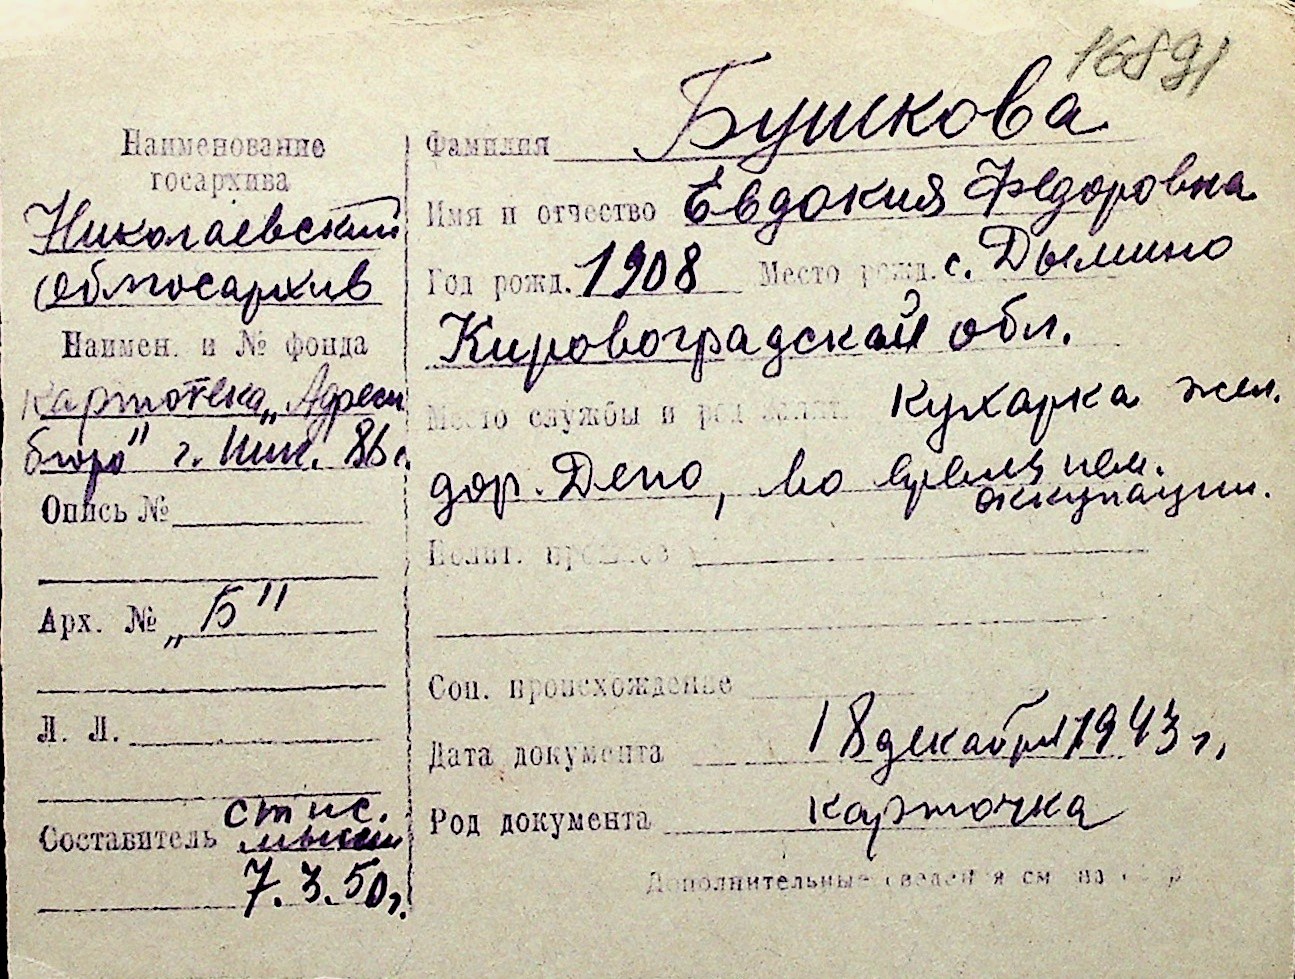 16891
Наименование
госархива
Николаевский
Облгосархив
Наимен. и № фонда
картотека „Адресн
бюро" г. Ник. 86 с.
Опись №
Арх. № „Б"
Л. Л.
Составитель ст. н. с.
7.3.50 г.
Фамилия Бушкова
Имя и отчество Евдокия Федоровна
Год рожд. 1908 Место рожд. с. Дымино
Кировоградской обл.
Место службы и род занят. Кухарка жел.
дор. Депо, во время нем.
оккупации.
Полит. прошлое
Соц. происхождение
Дата документа 18 декабря 1943 г.
Род документа карточка
Дополнительные сведения см. на